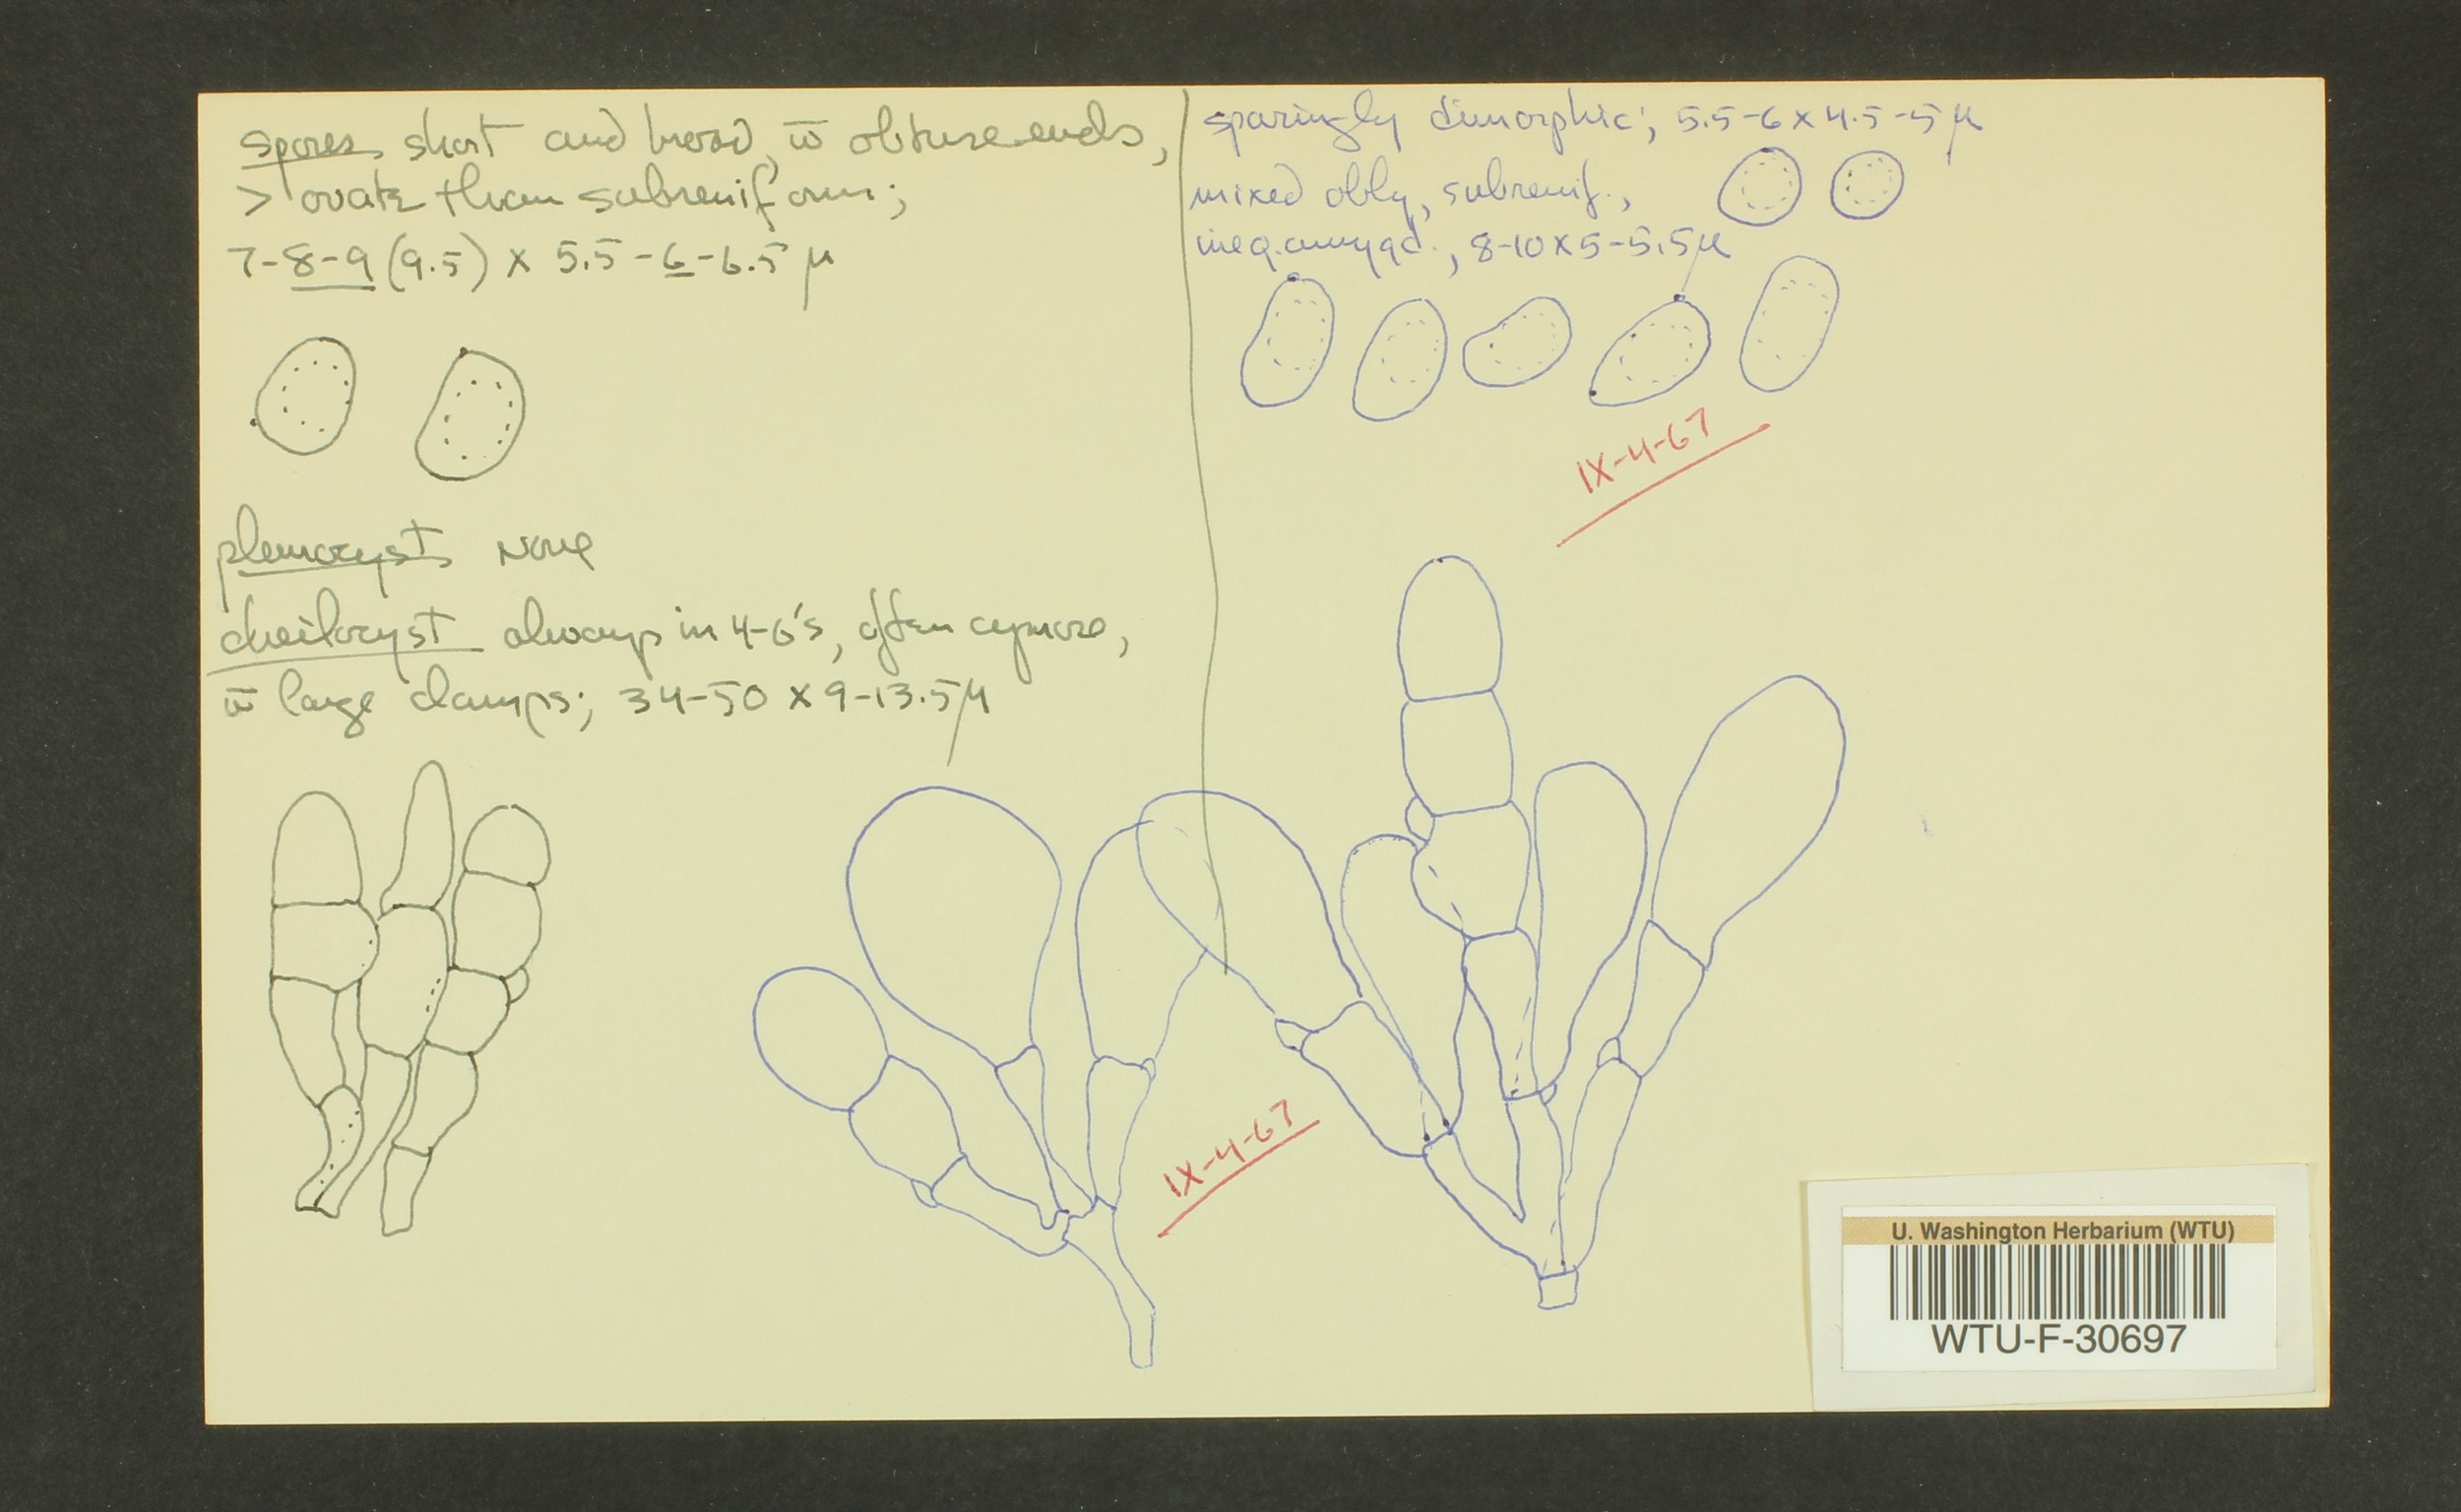 spores short and broad, w̄ obtuse ends,
> ovate than subreniform;
7-8-9 (9.5) x 5.5-6-6.5 µ
pleurocysts none
cheilocyst always in 4-6's, often cymose,
w̄ large clamps; 34-50 x 9-13.5 µ
sparingly dimorphic; 5.5-6 x 4.5-5 µ
mixed oblg, subrenif.,
ineq. amygd., 8-10 x 5-5.5 µ
IX-4-67
IX-4-67
U. Washington Herbarium (WTU)
WTU-F-30697